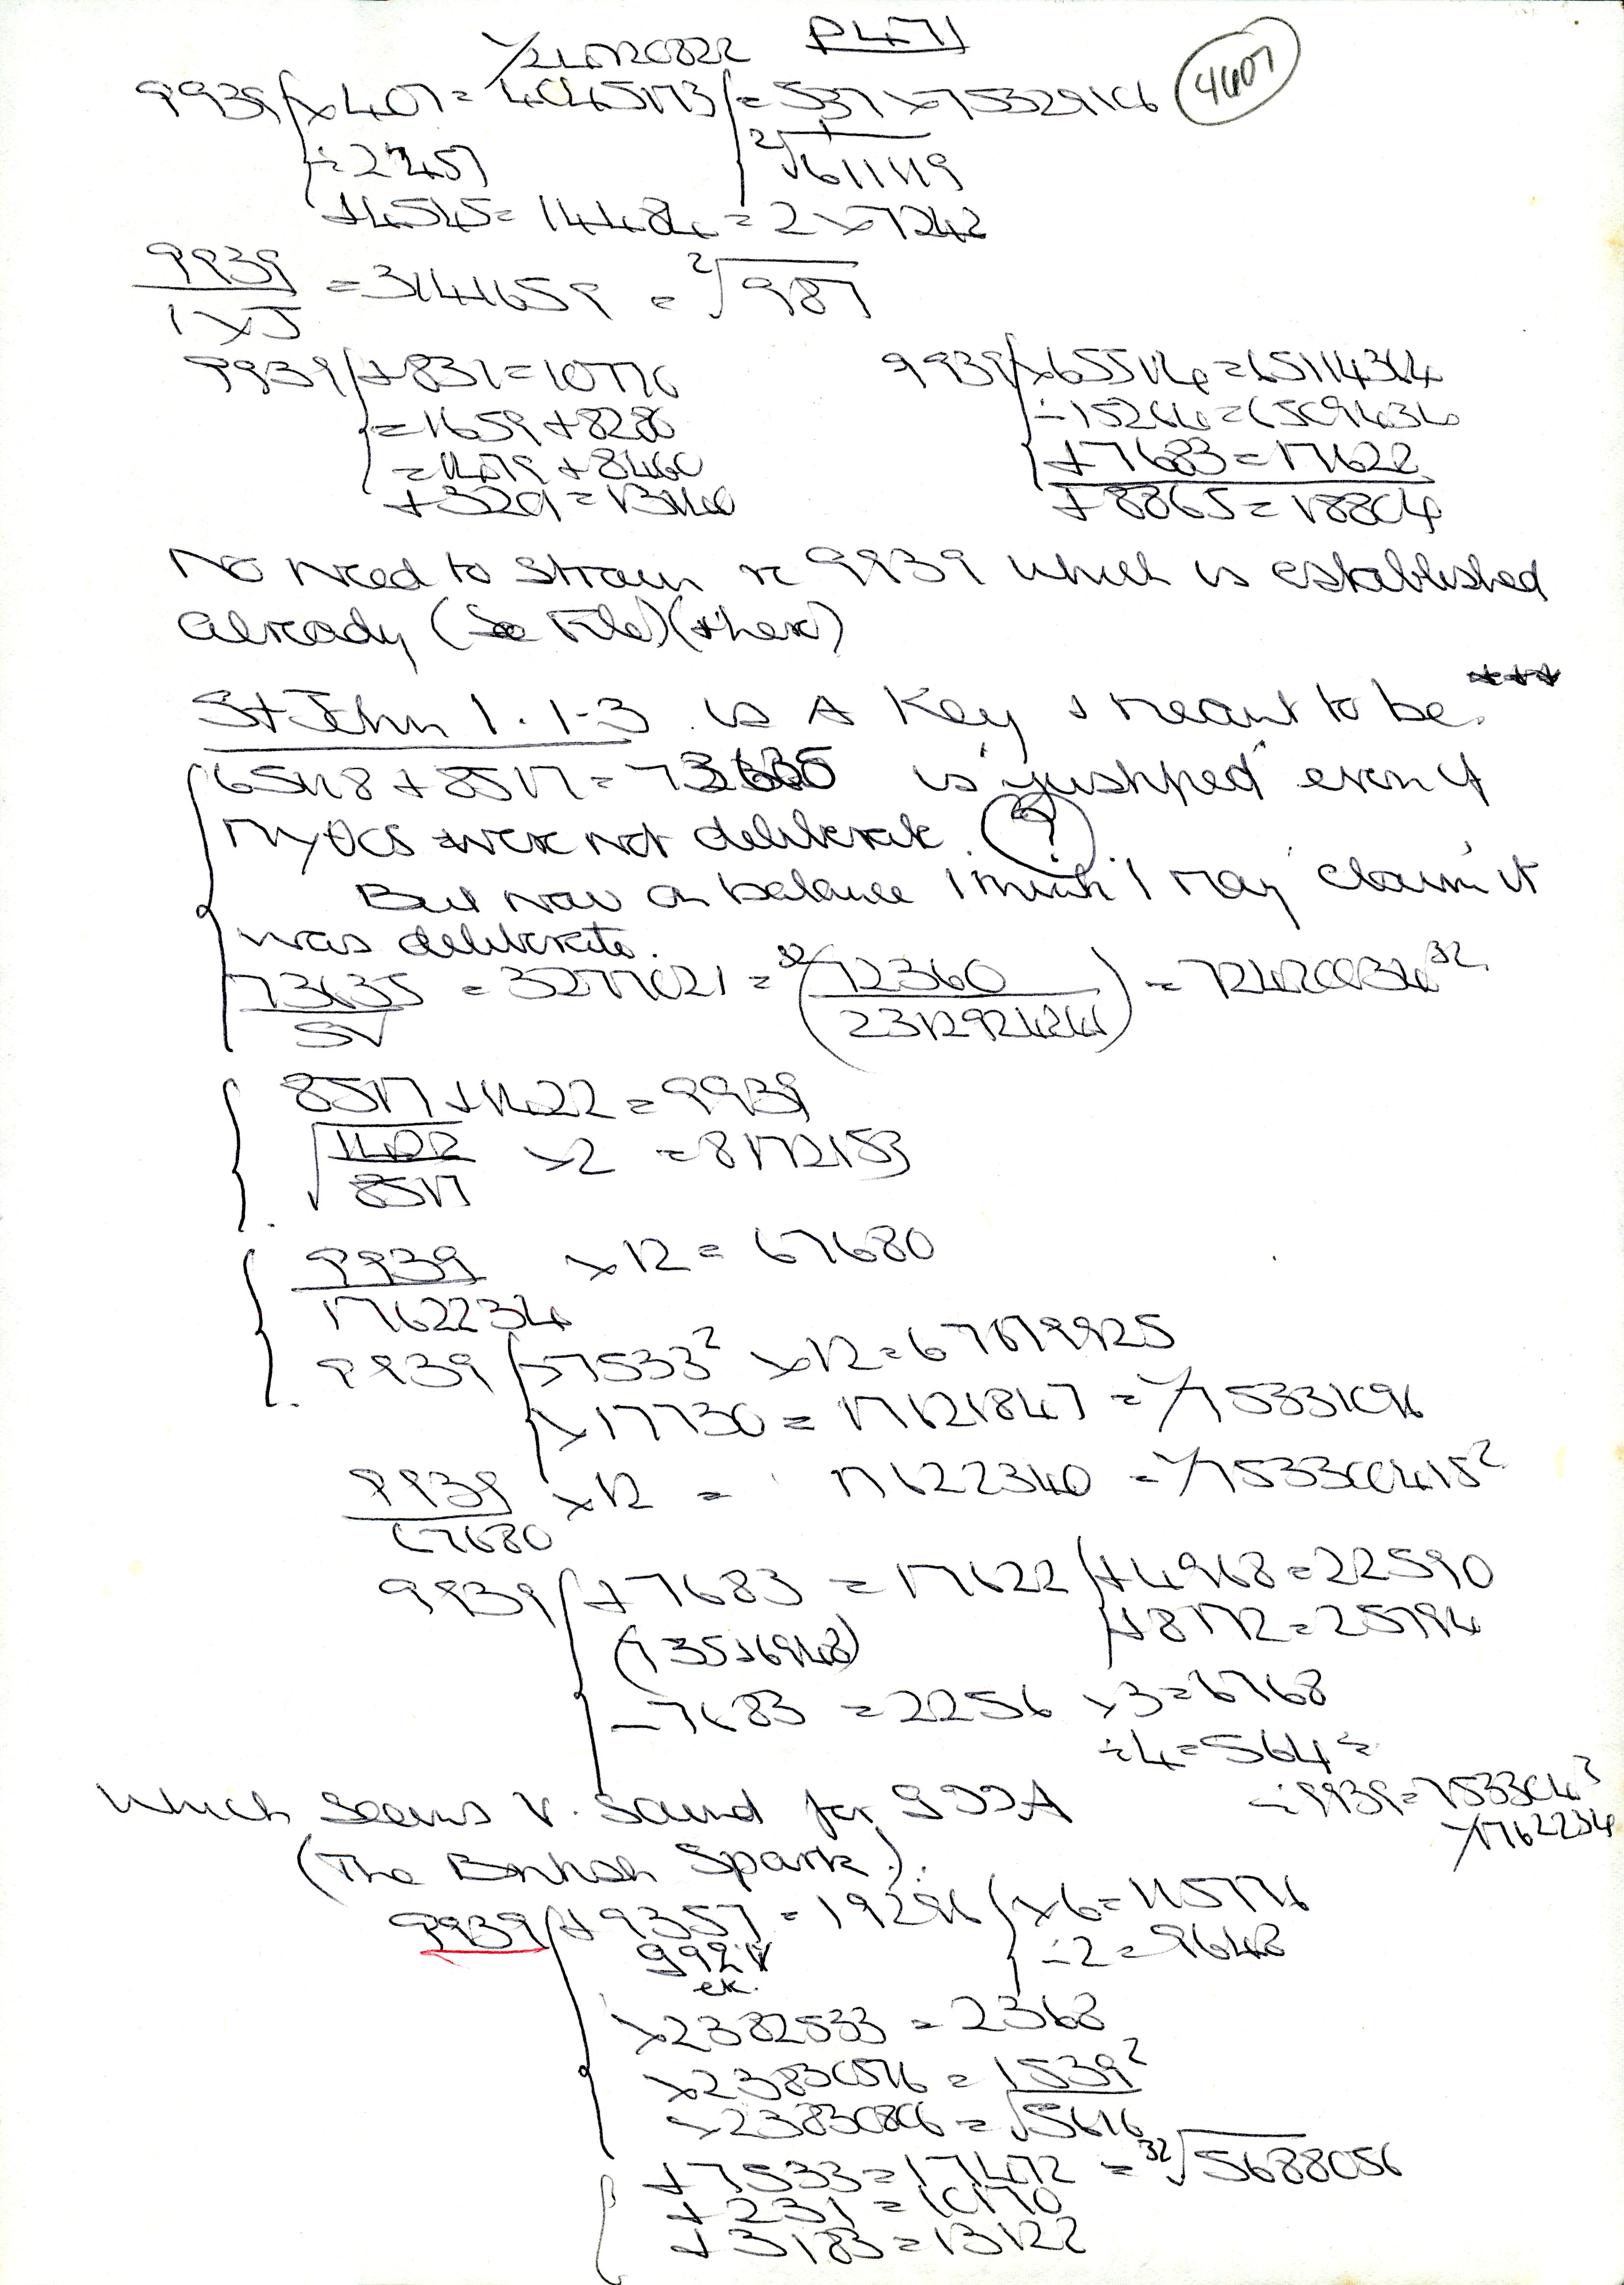 P471
4607
1/24720822
9939 × 407 = 4045173 = 537 × 75329106
÷ 2457 ²√611119
+ 4545 = 14484 = 2 × 7242
9939 / 1 × J = 3141659 = ²√987
9939 + 837 = 10776
= 1659 + 8280
= 1479 + 8460
+ 3201 = 13140
9939 × 65514 = 65114364
÷ 15264 = 65091434
+ 7683 = 17622
+ 8865 = 18804
No need to strain re 9939 which is established
already (See File) (+ here)
St John 1. 1-3 is A Key & meant to be. +++
65118 + 8517 = 73635 is 'justified' even if
Mytics were not deliberate. (?)
But now on balance I think I may 'claim' it
was deliberate.
73635 / SV = 3277021 = 32(12360 / 2312924264) = 72420034³²
8517 + 1422 = 9939
√1422 / 8517 × 2 = 8172153
9939 / 1762234 × 12 = 67680
9939 > 7533² × 12 = 67679925
× 17730 = 17621847 = 1/75331096
9939 / 67680 × 12 = 17622340 = 1/753300415²
9939 + 7683 = 17622 + 4968 = 22590
(735 + 6948) + 8172 = 25794
- 7683 = 2256 × 3 = 6768
÷ 4 = 564 =
÷ 9939 = 753304³
1/1762234
Which seems v. sound for 999A
(The British Spark).
9939 + 9357 = 19296 × 6 = 115776
992 V ÷ 2 = 9648
ek.
× 2382533 = 2368
× 23830576 = 1539²
× 23830806 = √5616
+ 7533 = 17472 = ³²√5688056
+ 231 = 10170
+ 3183 = 13122